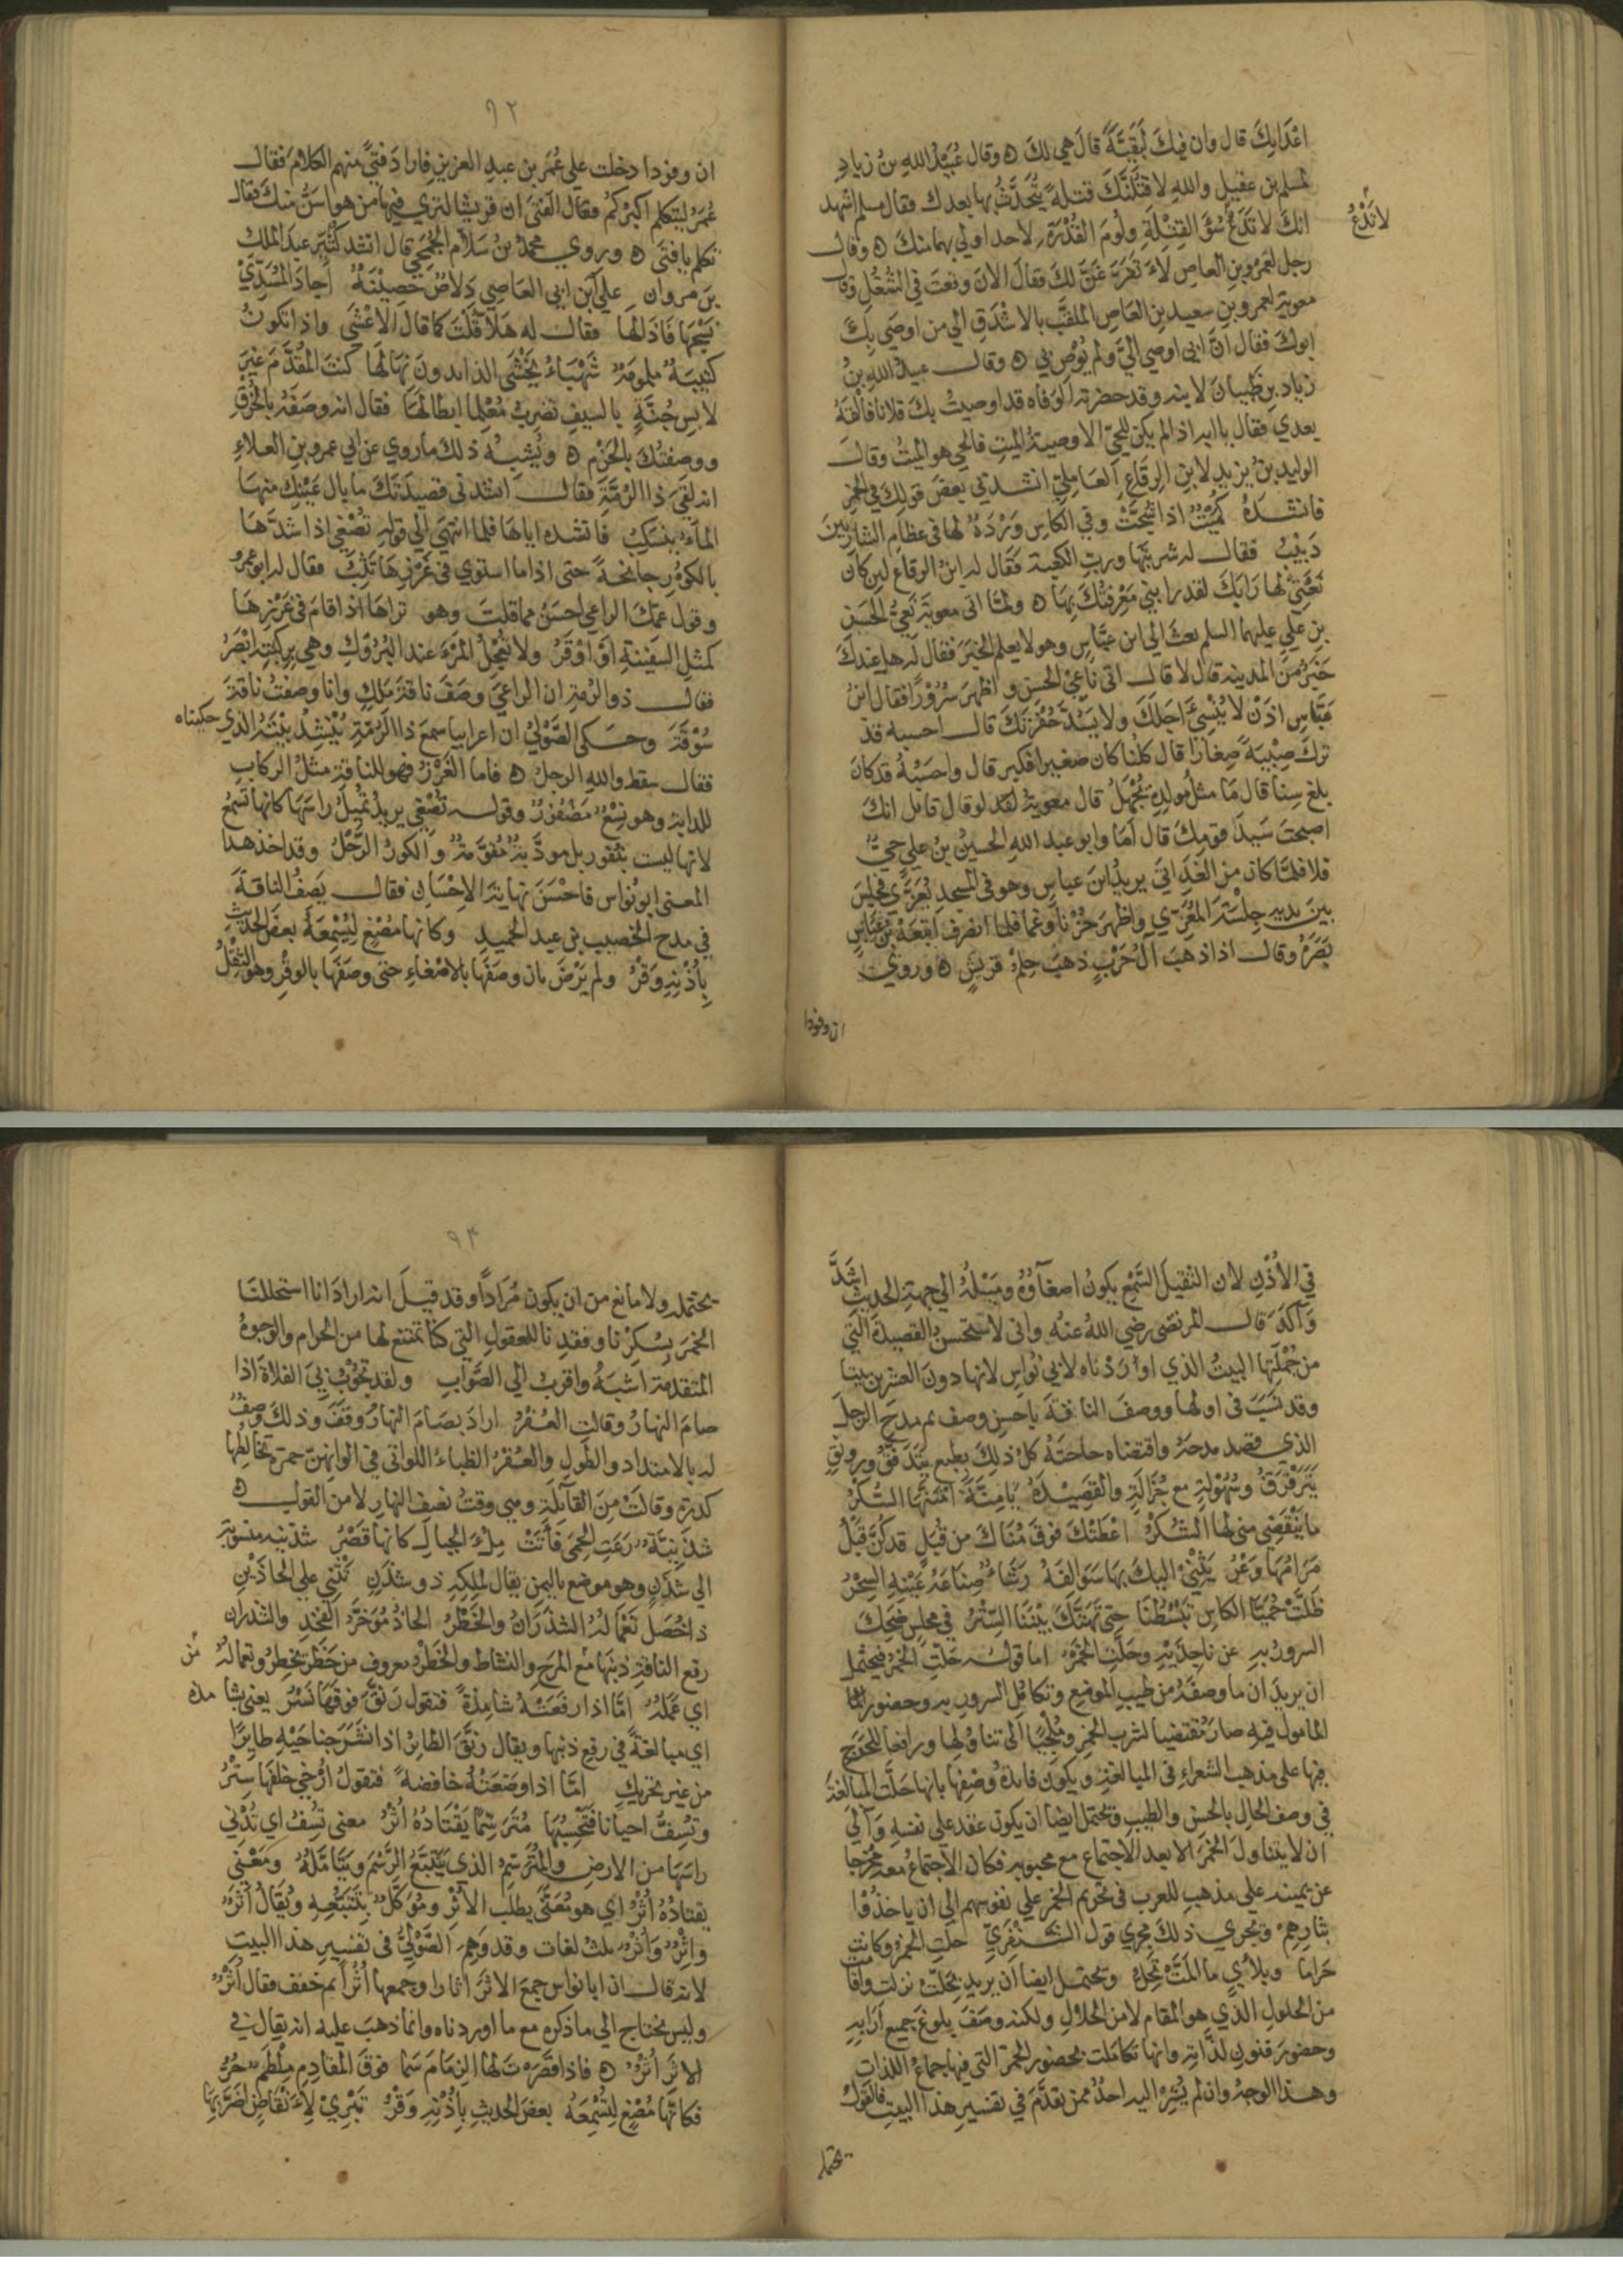 اعْدَايِكَ قال وان فيك لَبَقِيَّةً قالَ هي لكَ ه وقال عُبَيْدُ اللهِ بنُ زيادٍ
لمسلم بن عقيلٍ واللهِ لاقتُلَنَّكَ قتلةً يُتَحَدَّثُ بها بعدك فقال مسلم اشهد
انكَ لا تَدَعُ سُوَّ القِتْلَةِ ولُومَ القُدْرَةِ لاحد اولي بهما منكَ ه وقال
لا تَدَعُ
رجل لعَمْرِو بنِ العاصِ لاَ تَفَرَّغَنَّ لكَ فقالَ الانَ وقعتَ في الشُّغُلِ وقال
معوية لعمرو بن سعيد بنِ العَاصِ الملقَّب بالاشْدَقِ الي من اوصَي بِكَ
ابوكَ فقال انَّ ابي اوصي اليَّ ولم يُوصِ بي ه وقال عبيدُ اللهِ بنُ
زياد بنِ ظَبيانَ لابنه وقد حضرته الوَفاه قد اوصيتُ بكَ فلانا فالْقَهُ
بعدي فقال يا ابه اذا لم يكن للحيّ الا وصيةُ الميتِ فالحي هو الميتُ وقال
الوليد بنُ يزيدٍ لابنِ الرِقَاعِ العَامِليّ انشدني بعضَ قولِكَ في الخمرِ
فانشدهُ كُمَيْتٌ اذا شُجَّتْ وفي الكاسِ وَرْدَةٌ لها في عظامِ الشاربينَ
دَبِيْبُ فقال له شربتها وربّ الكعبة فقَال له ابنُ الرقاعِ لين كان
نَعْتِيْ لها رَابَكَ لقد رابني مَعْرِفَتُكَ بِهَا ه ولمّا اتى معويَةَ نَعِيُّ الحَسَنِ
بنِ عليّ عليهما السلم بعثَ الي ابنِ عبَّاسٍ وهو لا يعلم الخبَرَ فقال له هل عندكَ
خَبَرٌ منَ المدينه قال لا قال اتى نَاعِيُ الحسنِ واظهرَ سُرُوْرًا فقال ابنُ
عبَّاسٍ اذَنْ لا يُنْسِئَ اجَلَكَ ولا يَسُدَّ حُفْرَتَكَ قال احسبه قد
تركَ صِبْيَةً صِغارًا قال كلنا كان صغيرا فكبر قال واحسَبُهُ قد كانَ
بلغ سِنًا قال مَا مثلُ مولِدِه يُجْهَلُ قال معويةُ لقد لو قال قايل انكَ
اصبحتَ سَيدَ قومِكَ قال اَمَا وابو عبد اللهِ الحسينُ بنُ عليٍ حيٌّ
فلا فلمّا كان من الغَدِ اتيَ يزيدُ ابنَ عباسٍ وهو في المسجدِ يُعَزَّي فجلسَ
بينَ يديهِ جِلْسَةَ المُعَزِّي واظهرَ حُزْنًا وغما فلما انصرف اتبَعَهُ ابنُ عبَّاسٍ
بَصَرَهُ وقال اذا ذهبَ آلُ حَرْبٍ ذهبَ حِلمُ قريشٍ ه ورويَ
ان وفودا
٩٢
ان وفودا دخلت علي عُمَر بن عبدِ العزيزِ فارادَ فتيً منهم الكلامَ فقال
عُمَرُ ليتكلم اكبَرُكمُ فقال الفَتَى ان قريشا لتري فيها من هو اسَنُّ منكَ فقال
تكلم يا فتَي ه وروي محمدُ بنُ سَلاَّم الجُمَحي قال انشد كُثَيِّر عبدَ الملك
بنَ مروان علي ابنِ ابي العَاصِي دِلاَصٌ حَصِيْنَةٌ أجادَ المُسَدِّيْ
نَسْجَهَا فَاذَالهَا فقال له هَلاَّ قلْتَ كما قالَ الاَعْشَي واذا تكونُ
كتيبَةٌ ملمومَةٌ شَهْبَاءُ يَخْشَى الذايدونَ نِهَالَها كنتَ المُقدَّمَ غيرَ
لابسِ جُنَّةٍ بالسيفِ تضربُ مُعْلِما ابطالَهَا فقال انه وصَفَهُ بالخُرْقِ
ووصفتُكَ بالحَزْم ه ويُشبِهُ ذلكَ ما روي عن ابي عمرو بنِ العلاءِ
انه لقيَ ذا الرُمَّةِ فقال انشدني قصيدَتَكَ ما بالُ عَيْنِكَ منهَا
الماءُ ينسَكِبُ فانشده اياهَا فلما انتهي الي قولهِ تُصْغِي اذا شدَّهَا
بالكُورِ جانحةً حتى اذا ما استوي في غَرْزِهَا تَثِبُ فقال له ابو عمرو
وقول عمّكَ الراعي احسَنُ مما قلتَ وهو تراهَا اذا قامَ في غَرْزِهَا
كمثلِ السفِينةِ اَوْ اَوْقَرُ ولا تُعْجِلُ المرْءَ عند البُرُوْكِ وهي بِركبته ابْصَرُ
فقال ذو الرُمةِ ان الراعيَ وصَفَ ناقةَ مَلِكٍ وانا وصفتُ ناقةَ
سُوْقَةٍ وحكى الصَّوْليُ ان اعرابيا سمعَ ذا الرُمَّةِ يُنْشِدُ بيْتَهُ الذي حكيناه
فقال سقط واللهِ الرجلُ ه فاما الغَرْزُ فهو للناقةِ مثلُ الركابِ
للدابه وهو نِسْعٌ مَضْفُوْرٌ وقوله تُصْغِي يريدُ تُمِيلُ راسَهَا كانها تسمعُ
لانها ليست بنَفُورٍ بل مودَّبةٌ مُقوَّمةٌ والكورُ الرَّحْلُ وقد اخذ هذا
المعني ابو نُواس فاحْسَنَ نهايةَ الاِحْسَانِ فقال يَصِفُ الناقةَ
في مدح الخصيب بن عبد الحميد وكانها مُصْغٍ لِتُسْمِعَهُ بعضَ الحديثِ
بِأُذْنِهِ وَقْرُ ولم يَرْضَ بان وصَفَهَا بالاصْغاءِ حتى وصَفَهَا بالوقْرِ وهو الثِقْلُ
في الاُذُنِ لان الثقيلَ السَّمْعِ يكونُ اصغاؤُهُ ومَيْلُهُ الي جهةِ الحديثِ اشَدَّ
وَآكَدَ قال المرتضى رضي اللهُ عنه واني لاستحسنُ القصيدةَ التي
من جُمْلَتِهَا البيتُ الذي اورَدْناه لابي نُواسٍ لانها دونَ العشرين بيتا
وقد نسَبَ في اولها ووصفَ الناقةَ باحسنِ وصف ثم مدحَ الرجلَ
الذي قصد مدحَهُ واقتضاه حاجَتَهُ كلُ ذلكَ بطبعٍ يتَدفَّقُ ورونقٍ
يَتَرَقْرَقُ وسُهُوْلةٍ مع جَزَالَةٍ والقَصِيْدَةُ يَامِنَّةً امْتَنَّهَا السُّكْرُ
ما يَنْقَضِي مني لها الشُّكْرُ اعْطَتْكَ فوقَ مُنَاكَ من قُبَلٍ قد كُنَّ قَبْلُ
مَرَامُهَا وَعْرُ يَثْنِيْ اليكَ بهَا سَوَالِفَهُ رَشَاءٌ صِنَاعَةُ عَيْنِهِ السِحْرُ
ظَلَّتْ حُمَيَّا الكاسِ تَبْسُطُنَا حتى تَهَتَّكَ بَيْنَنَا السِّتْرُ في مجلسٍ ضَحِكَ
السرورُ بهِ عن ناجِذَيْهِ وحَلَّتِ الخَمْرُ اما قوله حَلّتِ الخمرُ فيحتمل
ان يريدَ ان ما وصفَهُ من طيبِ الموضعِ وتكامُلِ السرورِ بهِ وحضورِ
المامولِ فيهِ صارَ مُقتضيا لشربِ الخمرِ ومُلْجِئًا الى تناوُلِها ورافعا للحَرَجِ
فيها علي مذهب الشعراءِ في المبالغةِ ويكون فايدةُ وصْفِها بانها حَلّتِ المبالغةَ
في وصف الحالِ بالحسنِ والطيبِ وتحتمل ايضا ان يكون عقد علي نفسهِ وَآلَي
ان لا يتناولَ الخمرَ الا بعد الاجتماع مع محبوبهِ فكان الاجتماعُ معه مُخْرِجا
عن يمينه علي مذهب العرب في تحريم الخمر علي نفوسهم الي ان ياخذُوْا
بثارِهِمْ ويجري ذلكَ مجري قول الشَّنْفَرِيّ حَلّتِ الخمرُ وكانت
حَراما وبلأْيٍ ما المَتْ تَحِلُّ وتحتمل ايضا ان يريد بحَلّتْ نزلت واقامت
من الحلولِ الذيِ هو المقام لا من الحلالِ ولكنه وصَفَ بلوغَ جميعِ آرَابِهِ
وحضورَ فنونِ لذَّاتِهِ وانها تكاملت بحضور الخمر التي فيها جماعُ اللذاتِ
وهذا الوجهُ وان لم يُشِرْ اليه احدٌ ممن تقدَّمَ في تفسيرِ هذا البيتِ فالقولُ
يحتمله
٩٣
يحتمله ولا مانع من ان يكون مُرَاداً وقد قيلَ انه ارادَ انا استحللنَا
الخمرَ بِسُكرِنا وفقدِنا للعقولِ التي كنّا نمتنع لها من الحرام والوجوهُ
المتقدمة اشبَهُ واقربُ الي الصَّوابِ ولقد تَجُوْبُ بيَ الفلاةَ اذا
صامَ النهارُ وقالتِ العُفْرُ ارادَ بصَامَ النهارُ وقَفَ وذلك وصفٌ
له بالامتداد والطُولِ والعُفْرُ الظباءُ اللواتي في الوانِهنّ حمرة تخالطها
كدرة وقالَتْ مِنَ القآيِلَةِ وهي وقتُ نصف النهارِ لا من القول ه
شَدَنِيَّةٌ رَعَتِ الحِمَي فاَتَتْ مِلءَ الحبالِ كانها قَصْرُ شدنيه منسوبة
الي شدَنٍ وهو موضع باليمن يقال لملِكِهِ ذو شدَنٍ تَثْنِي علي الحاذَيْنِ
ذا خُصَلٍ تَعْمَالُهُ الشذَرَانُ والخَطْرُ الحاذُ مُؤخَّرُ الفَخِذِ والشذران
رفع الناقةِ ذنبَها مع المرَحِ والنشاط والخَطْرُ معروف من خَطَرَ يخطِرُ وتعمالهُ من
اي عَمَلُهُ امَّا اذا رفَعَتْهُ شامِذةً فتقول رَنَّقَ فوقهَا نَسْرُ يعني شامذة
اي مبالغةً في رفع ذنبها ويقال رنَّقَ الطاير اذا نشَرَ جناحَيْهِ طايِرًا
من غير تحريكٍ امَّا اذا وضَعَتْهُ خافضةً فتقولُ اُرْخيَ خلفَهَا سِتْرُ
وتُسِفُّ احيانا فتَحْسِبُهَا مُتَرَسِّمًا يَقْتَادُهُ اُثْرُ معني تُسِفُ اي تُدْني
راسَهَا من الارضِ والمُتَرَسِّمِ الذي يَتَتَبَّعُ الرَّسْمَ ويتَامَّلُهُ ومَعْني
يقتادُهُ اُثْرُ اي هو مُعَنًّي بطلبِ الأثْرِ ومُوَكَّلٌ بِتَتَبُّعِهِ ويُقَالُ أثَرٌ
وَاِثْرٌ وَاُثْرٌ ثلث لغات وقد وَهِمَ الصَّوْلِيُّ في تفسيرِ هذا البيتِ
لانه قال ان ابا نواس جمعَ الاثَرَ آثارا وجمعها اُثُراً ثم خفف فقال اُثْرٌ
وليس يحتاج الي ما ذكره مع ما اوردناه وانما ذهبَ عليه انه يقال في
الاثَرِ اُثْرٌ ه فاذا قصَرْتَ لها الزِمَامَ سَمَا فوقَ المقادِمِ مِلْطَمٌ حُرُّ
فكانّها مُصْغٍ لِتُسْمِعَهُ بعضَ الحديثِ بِأُذْنِهِ وَقْرُ تَبْرِيْ لِأَنْقَاضٍ اضَرَّ بِهَا